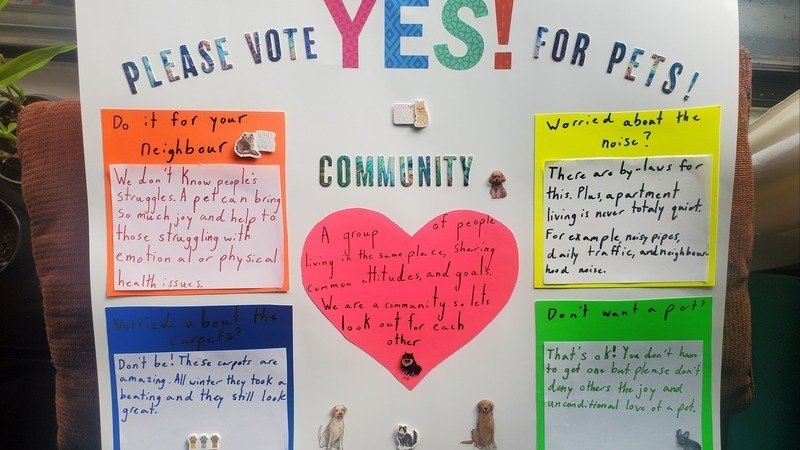 PLEASE VOTE YES! FOR PETS!
Do it for your
neighbour
We don't know people's
struggles. A pet can bring
so much joy and help to
those struggling with
emotional or physical
health issues.
COMMUNITY
A group of people
living in the same place, sharing
common attitudes, and goals.
We are a community so lets
look out for each
other
Worried about the
noise?
There are by-laws for
this. Plus, apartment
living is never totaly quiet.
For example noisy pipes,
daily traffic, and neighbour-
hood noise.
Worried about the
carpets?
Don't be! These carpets are
amazing. All winter they took a
beating and they still look
great.
Don't want a pet?
That's ok! You don't have
to get one but please don't
deny others the joy and
unconditional love of a pet.